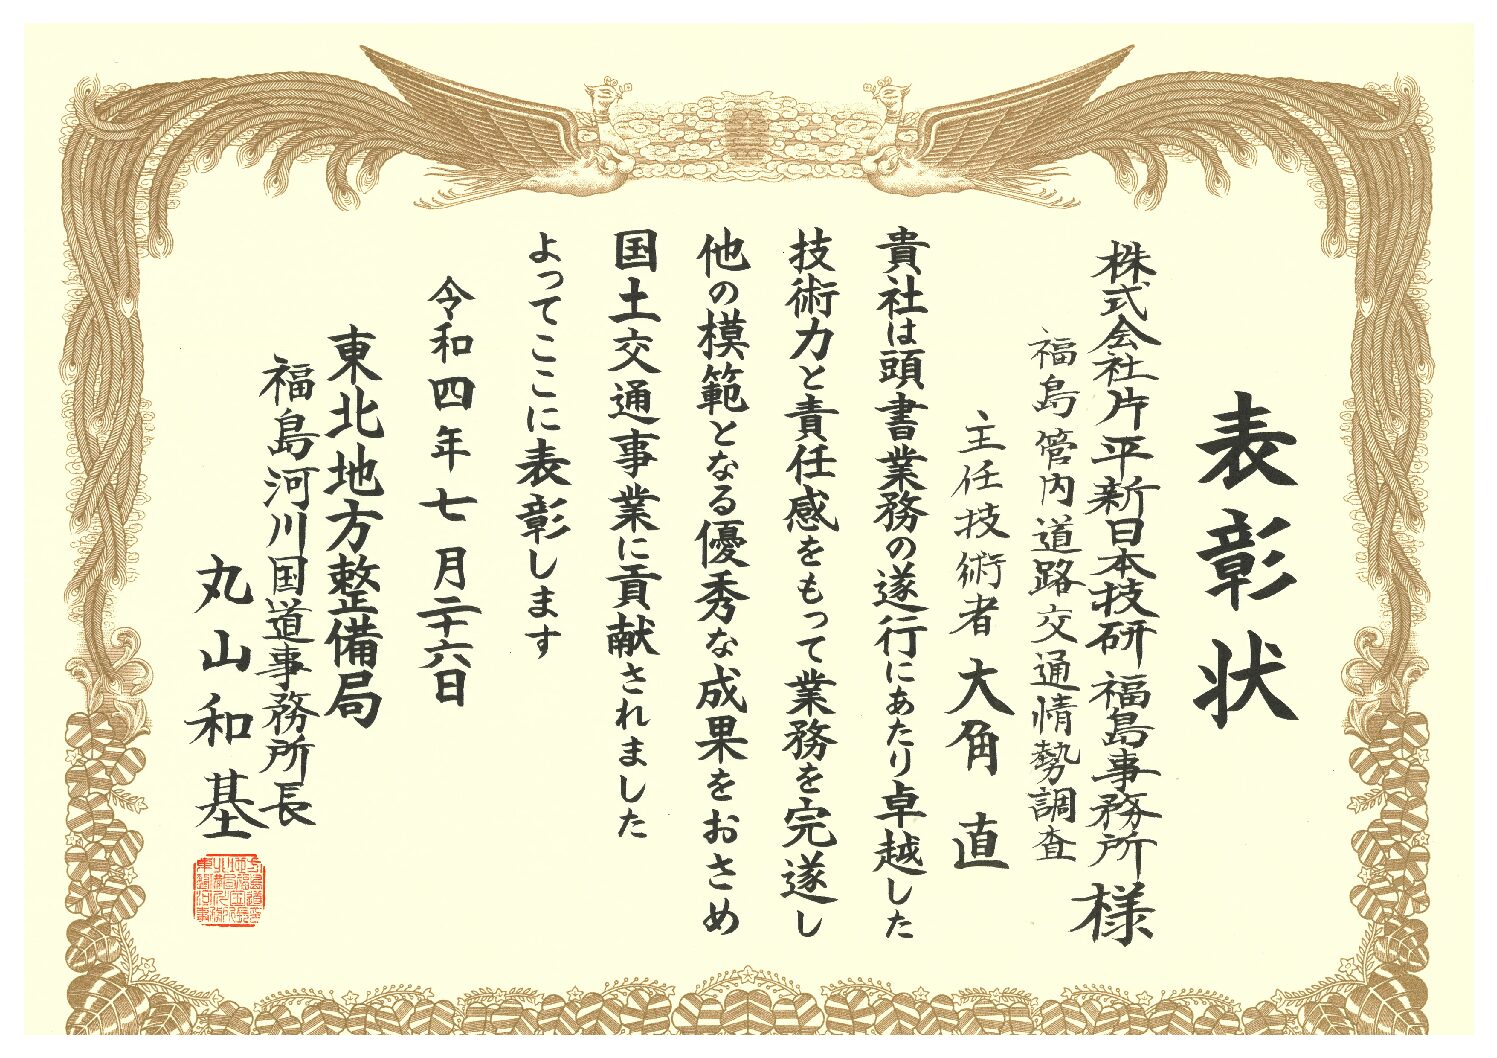 表彰状
株式会社片平新日本技研 福島事務所 様
福島管内道路交通情勢調査
主任技術者 大角 直
貴社は頭書業務の遂行にあたり卓越した
技術力と責任感をもって業務を完遂し
他の模範となる優秀な成果をおさめ
国土交通事業に貢献されました
よってここに表彰します
令和四年七月二十六日
東北地方整備局
福島河川国道事務所長
丸山和基